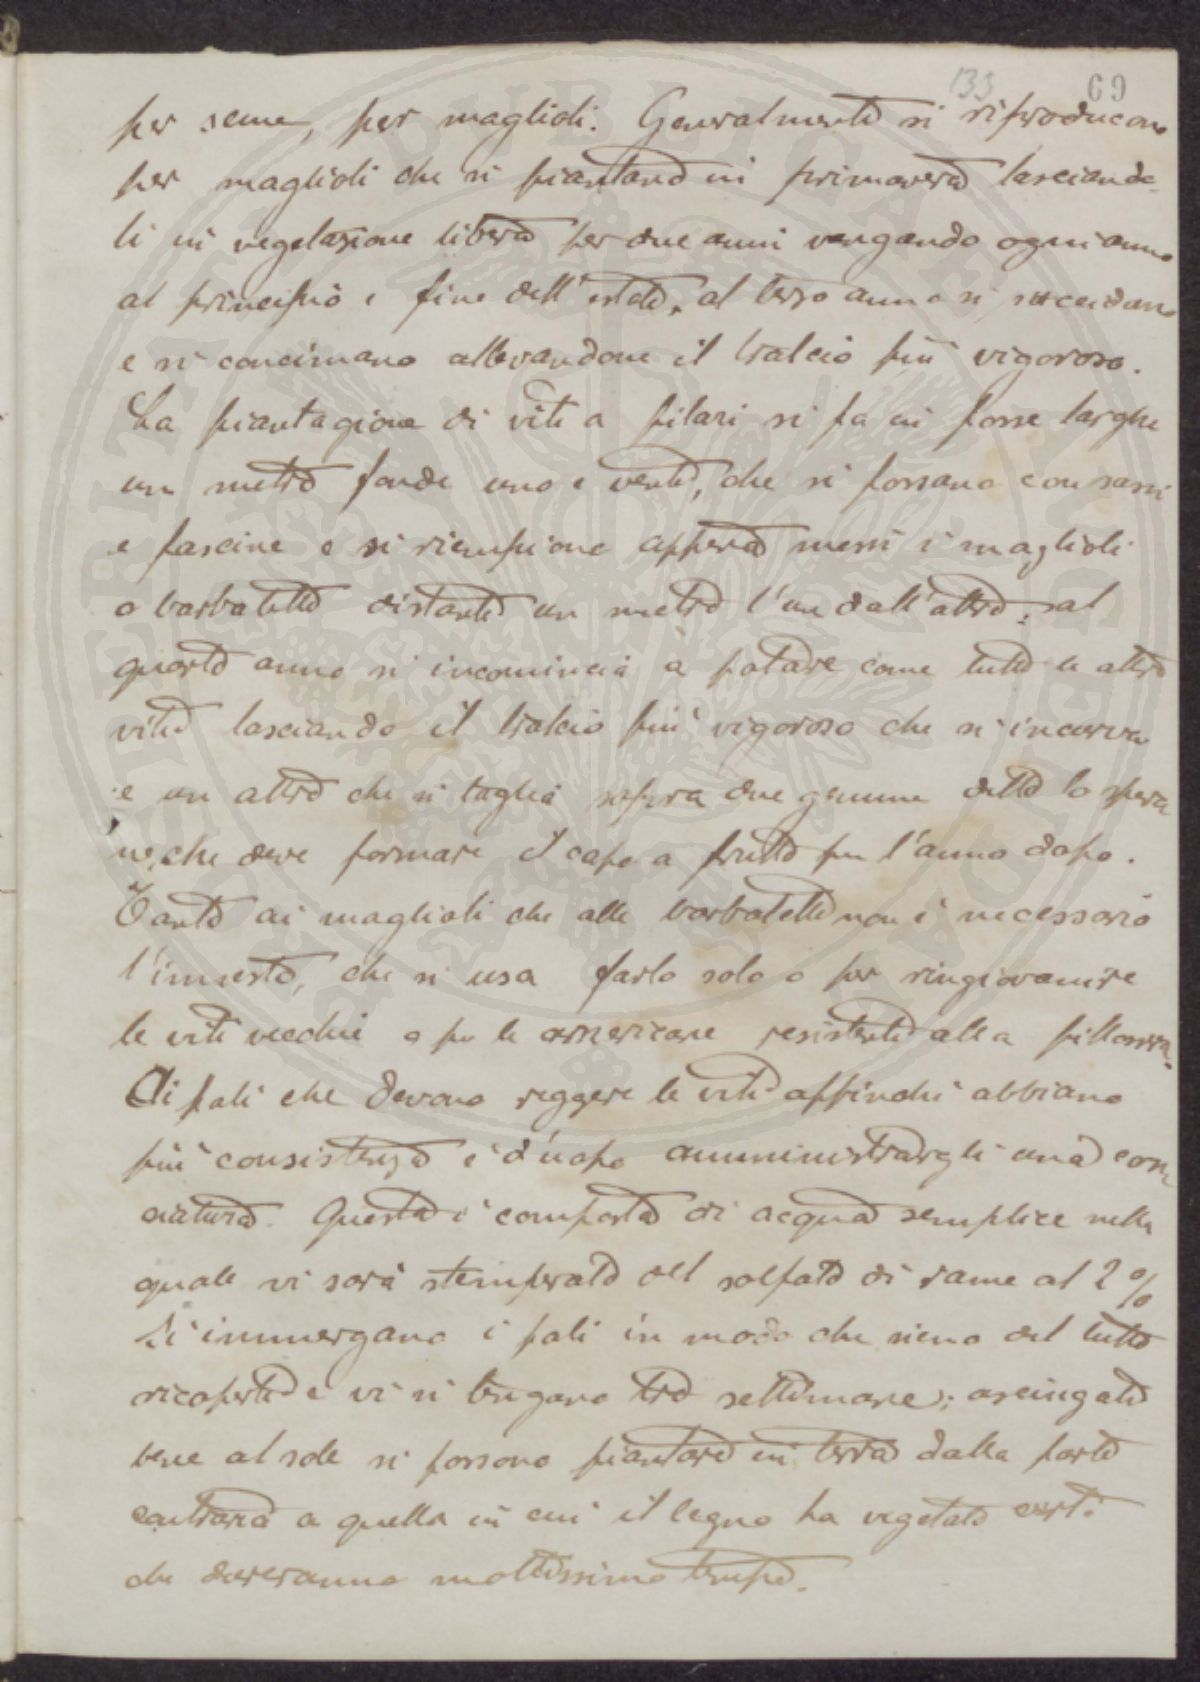 133 69
per seme, per maglioli. Generalmente si riproducono
per maglioli che si piantano in primavera lasciando-
li in vegetazione libera per due anni vangando ogni anno
al principio e fine dell'estate. al terzo anno si succidano
e si concimano allevandone il tralcio più vigoroso.
La piantagione di viti a filari si fa in fosse larghe
un metro fonde uno e venti, che si fossano con sassi
e fascine e si riempione appena messi i maglioli
o barbatelle distante un metro l'un dall'altro; al
quarto anno si incomincia a potare come tutte le altre
vite lasciando il tralcio più vigoroso che si incurva
e un altro che si taglia sopra due gemme detto lo spero
ne, che deve formare il capo a frutto per l'anno dopo.
Tanto ai maglioli che alle barbatelle non è necessario
l'innesto, che si usa farlo solo o per ringiovanire
le viti vecchie o per le americane resistente alla fillossera.
Ai pali che devono reggere le vite affinchè abbiano
più consistenza è d'uopo amministrargli una con
ciatura. Questa è composta di acqua semplice nella
quale vi sarà stemperato del solfato di rame al 2%
Si immergano i pali in modo che sieno del tutto
ricoperte e vi si tengano tre settimane; asciugate
bene al sole si possono piantare in terra dalla parte
contraria a quella in cui il legno ha vegetato certi
che dureranno moltissimo tempo.